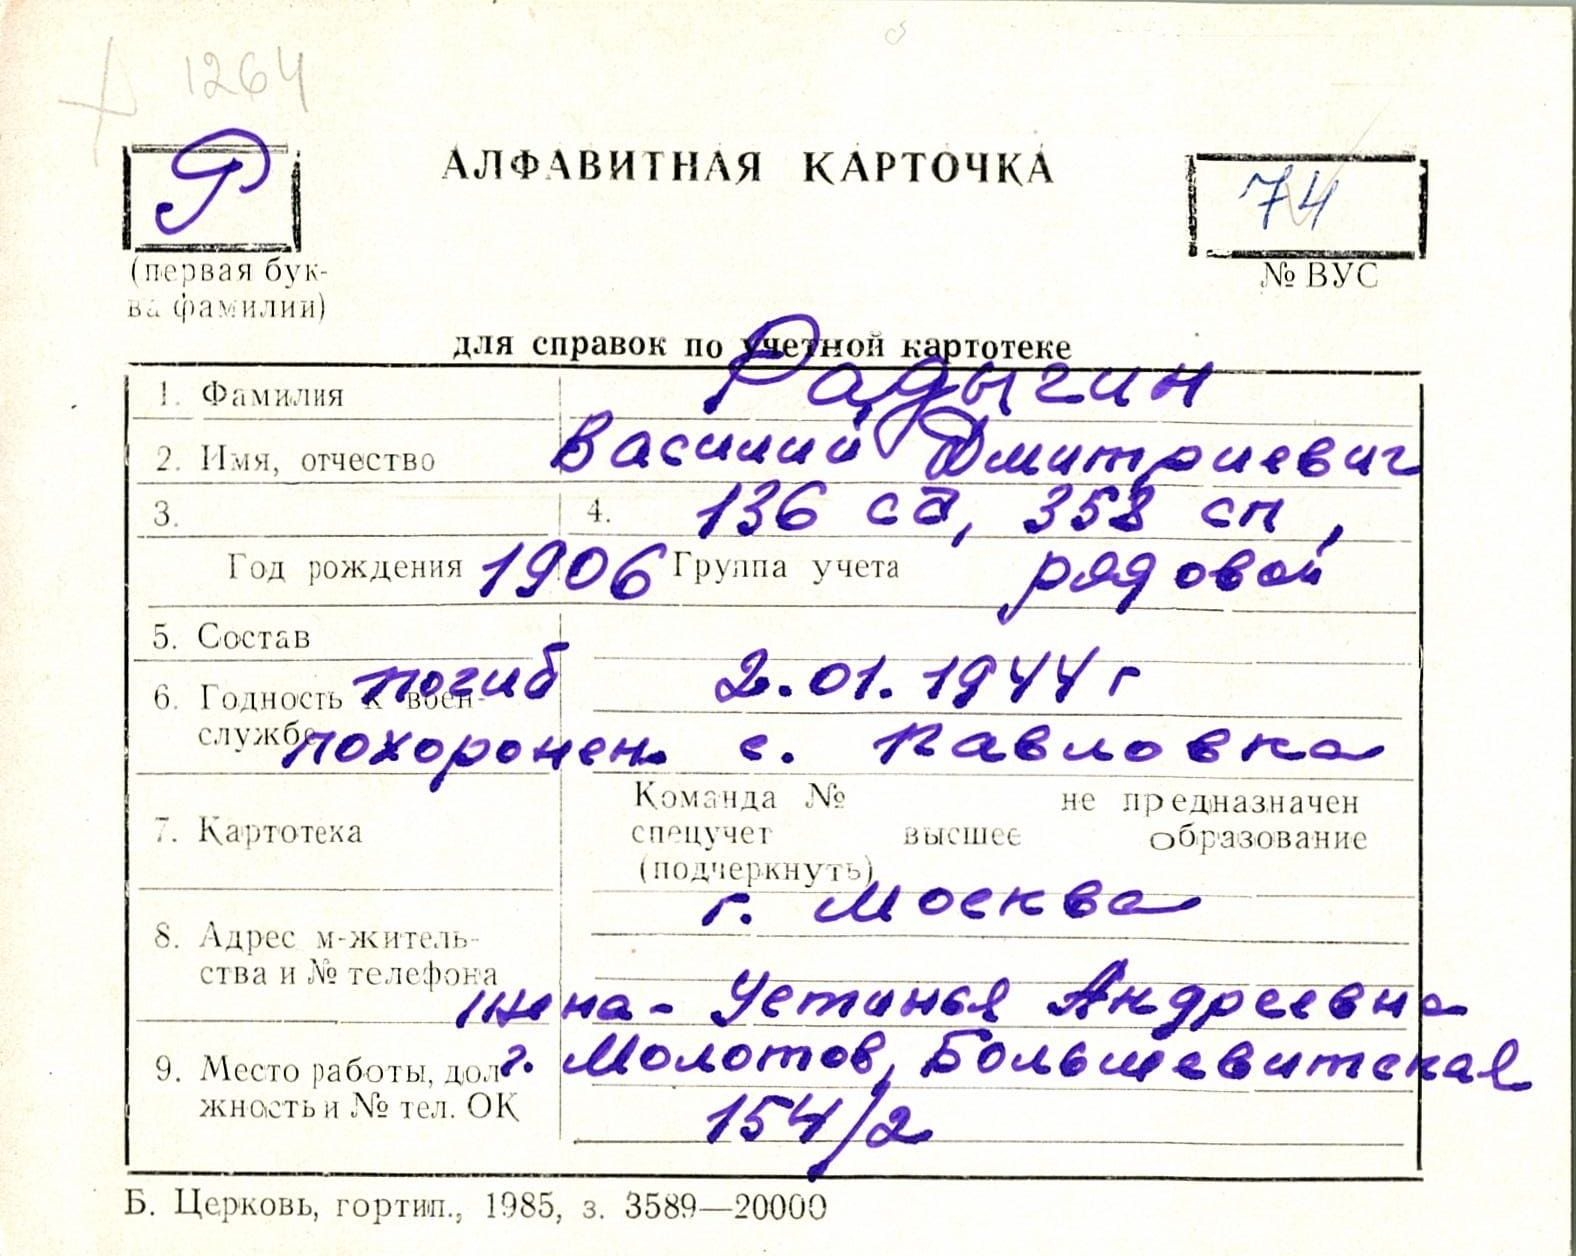 1264
Р
АЛФАВИТНАЯ КАРТОЧКА
74
(первая бук-
ва фамилии)
№ ВУС
для справок по учетной картотеке
1. Фамилия Радыгин
2. Имя, отчество Василий Дмитриевич
3. 4. 136 сд, 358 сп,
Год рождения 1906 Группа учета рядовой
5. Состав
погиб 2.01.1944 г
6. Годность к воен-
службе
похоронен. с. Павловка
Команда № не предназначен
7. Картотека спецучет высшее образование
(подчеркнуть)
г. Москва
8. Адрес м-житель-
ства и № телефона
жена - Устинья Андреевна
9. Место работы, дол- г. Молотов, Большевитская
жность и № тел. ОК 154/2
Б. Церковь, гортип., 1985, з. 3589—20000